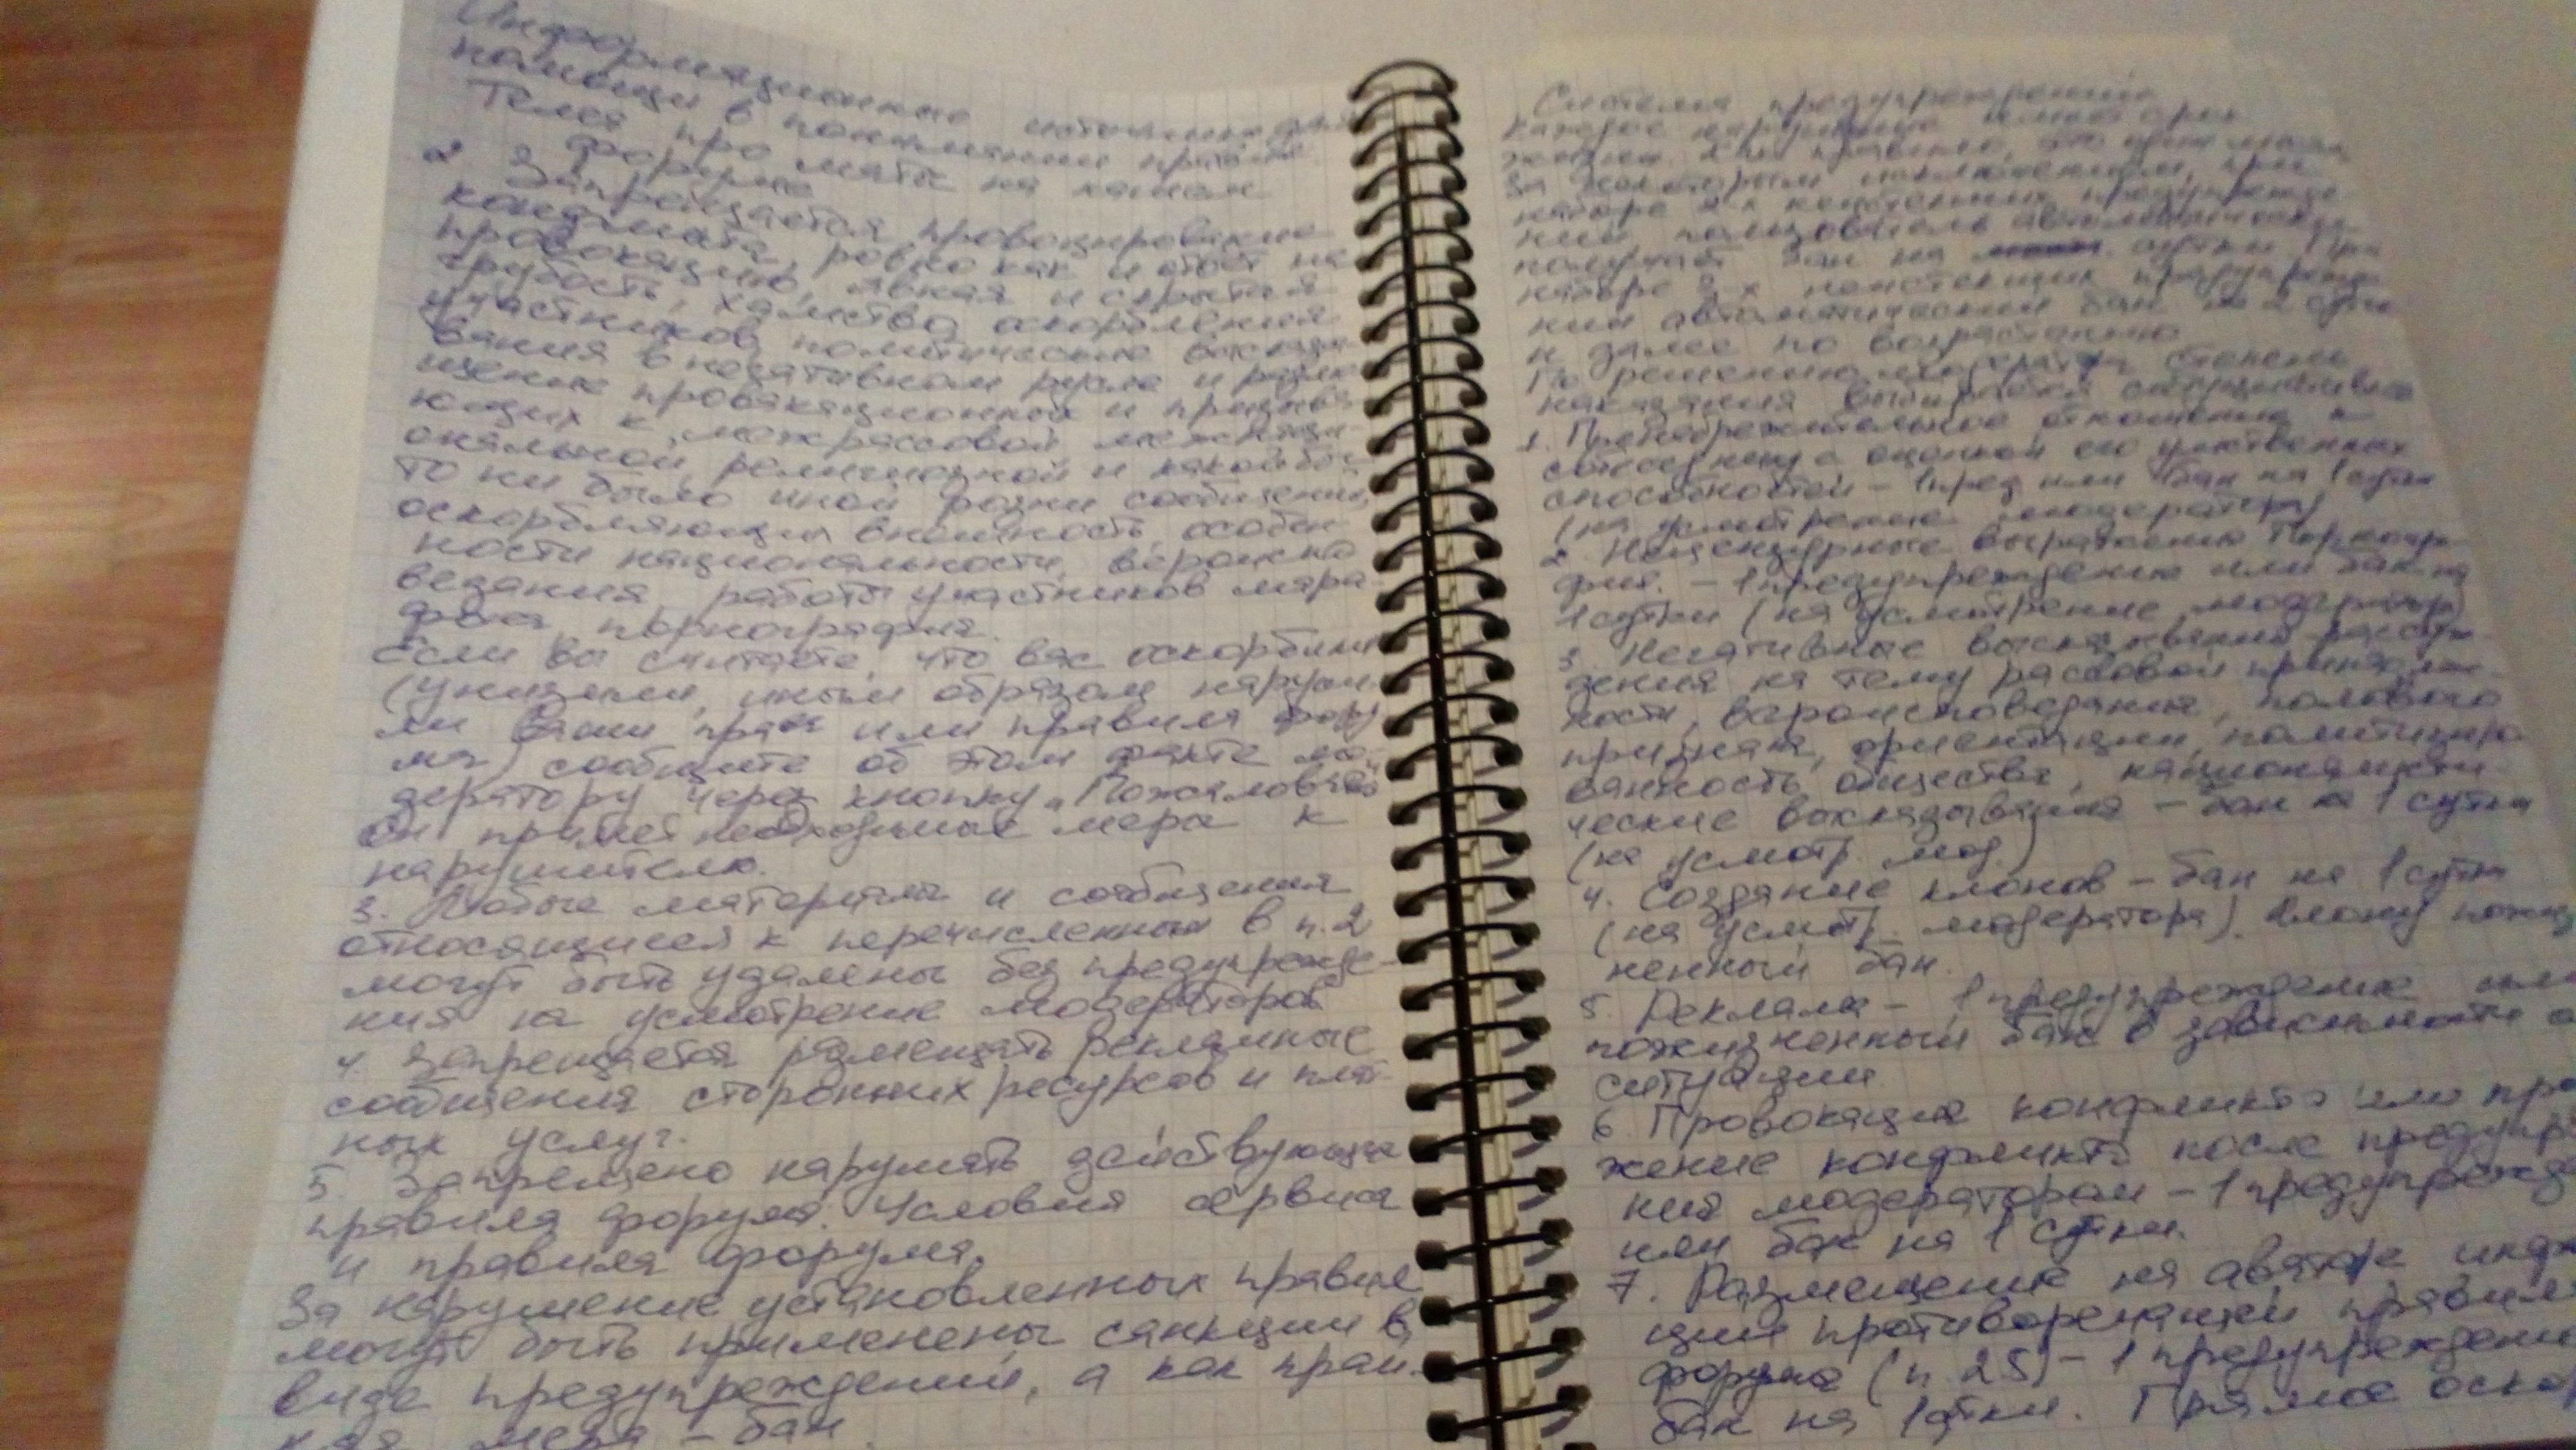 Информационные источники для
помощи в понимании правил
Тема про маты на нашем
форуме
2 Запрещается провоцирование
конфликта, ровно как и ответ на
провокацию, явная и скрытая
грубость, хамство, оскорбления
участников, политические выска
вания в негативном русле и разме
щение провокационных и призыва
ющих к межрассовой, межнаци
ональной, религиозной и какой бы
то ни было иной розни сообщений,
оскорбляющих внешность, особен
ности национальности, вероиспо
ведания, работы участников мара
фона порнография.
Если вы считаете, что вас оскорбили
(унизили, иным образом наруши
ли Ваши права или правила фору
ма) сообщите об этом факте мо
дератору через кнопку "Пожаловаться
Он примет необходимые меры к
нарушителю.
3. Любые материалы и сообщения
относящиеся к перечисленным в п.2
могут быть удалены без предупрежде-
ния на усмотрение модераторов
4 Запрещается размещать рекламные
сообщения сторонних ресурсов и плат
ных услуг.
5. Запрещено нарушать действующие
правила форума. Условия сервиса
и правила форума.
За нарушение установленных правил
могут быть применены санкции в
виде предупреждений, а как край-
няя мера - бан.
Система предупреждений
каждое нарушение имеет срок
За некоторым исключением, при
наборе 2-х неистекших предупрежде
ний пользователь автоматически
получает бан на сутки При
наборе 3-х неистекших предупрежде
ний автоматический бан на 2 сутки
и далее по возрастанию
По решению модератора степень
наказания выбирается
1. Пренебрежительное отношение к
собеседнику с оценкой его умственных
способностей - 1 пред или бан на 1 сутки
(на усмотрение модератора)
2. Нецензурные выражения Порногра
фия. - 1 предупреждение или бан на
1 сутки (на усмотрение модератора)
3. Негативные высказывания рассуж
дения на тему рассовой принадлеж
ности, вероисповедания, полового
признака, ориентации, политизиро
ванность общества, националисти
ческие высказывания - бан на 1 сутки
(на усмотр. мод.)
4. Создание клонов - бан на 1 сутки
(на усмотр. модератора). Клону пожиз
ненный бан.
5. Реклама - 1 предупреждение или
пожизненный бан в зависимости о
ситуации
6 Провокация конфликта или про
жение конфликта после предупр
ния модератором - 1 предупрежд
или бан на 1 сутки.
7. Размещение на аватаре инфо
ции противоречащей правил
форума (п. 25) - 1 предупреждени
бан на 1 сутки. Прямое оско